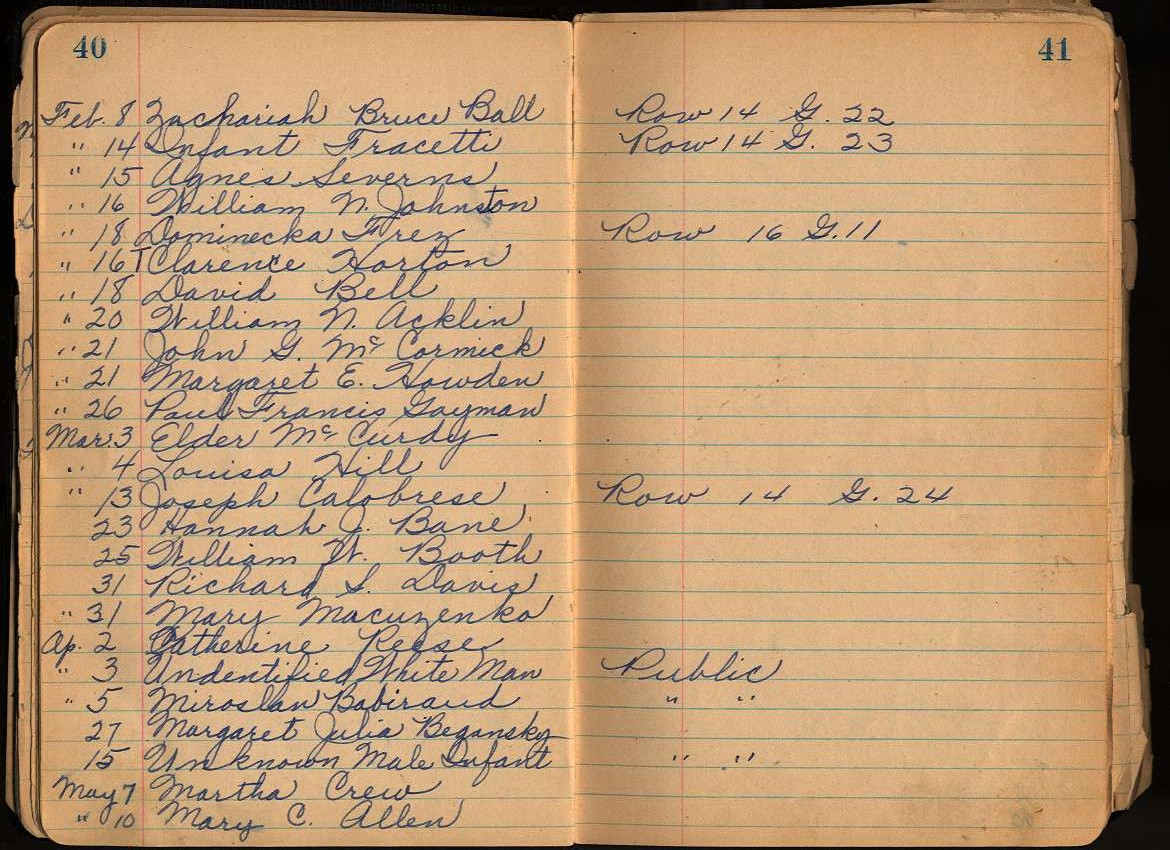 40
41
Feb. 8 Zachariah Bruce Ball Row 14 G. 22
" 14 Infant Fracetti Row 14 G. 23
" 15 Agnes Severns
" 16 William N. Johnston
" 18 Dominecka Frez Row 16 G. 11
" 16 Clarence Horton
" 18 David Bell
" 20 William N. Acklin
" 21 John G. Mc Cormick
" 21 Margaret E. Howden
" 26 Paul Francis Gayman
Mar. 3 Elder Mc Curdy
" 4 Louisa Hill
" 13 Joseph Calobrese Row 14 G. 24
23 Hannah J. Bane
25 William W. Booth
31 Richard S. Davis
" 31 Mary Macuzenko
Ap. 2 Catherine Reese
" 3 Undentified White Man Public
" 5 Miroslan Babiraud " "
27 Margaret Julia Begansky
15 Unknown Male Infant " "
May 7 Martha Crew
" 10 Mary C. Allen